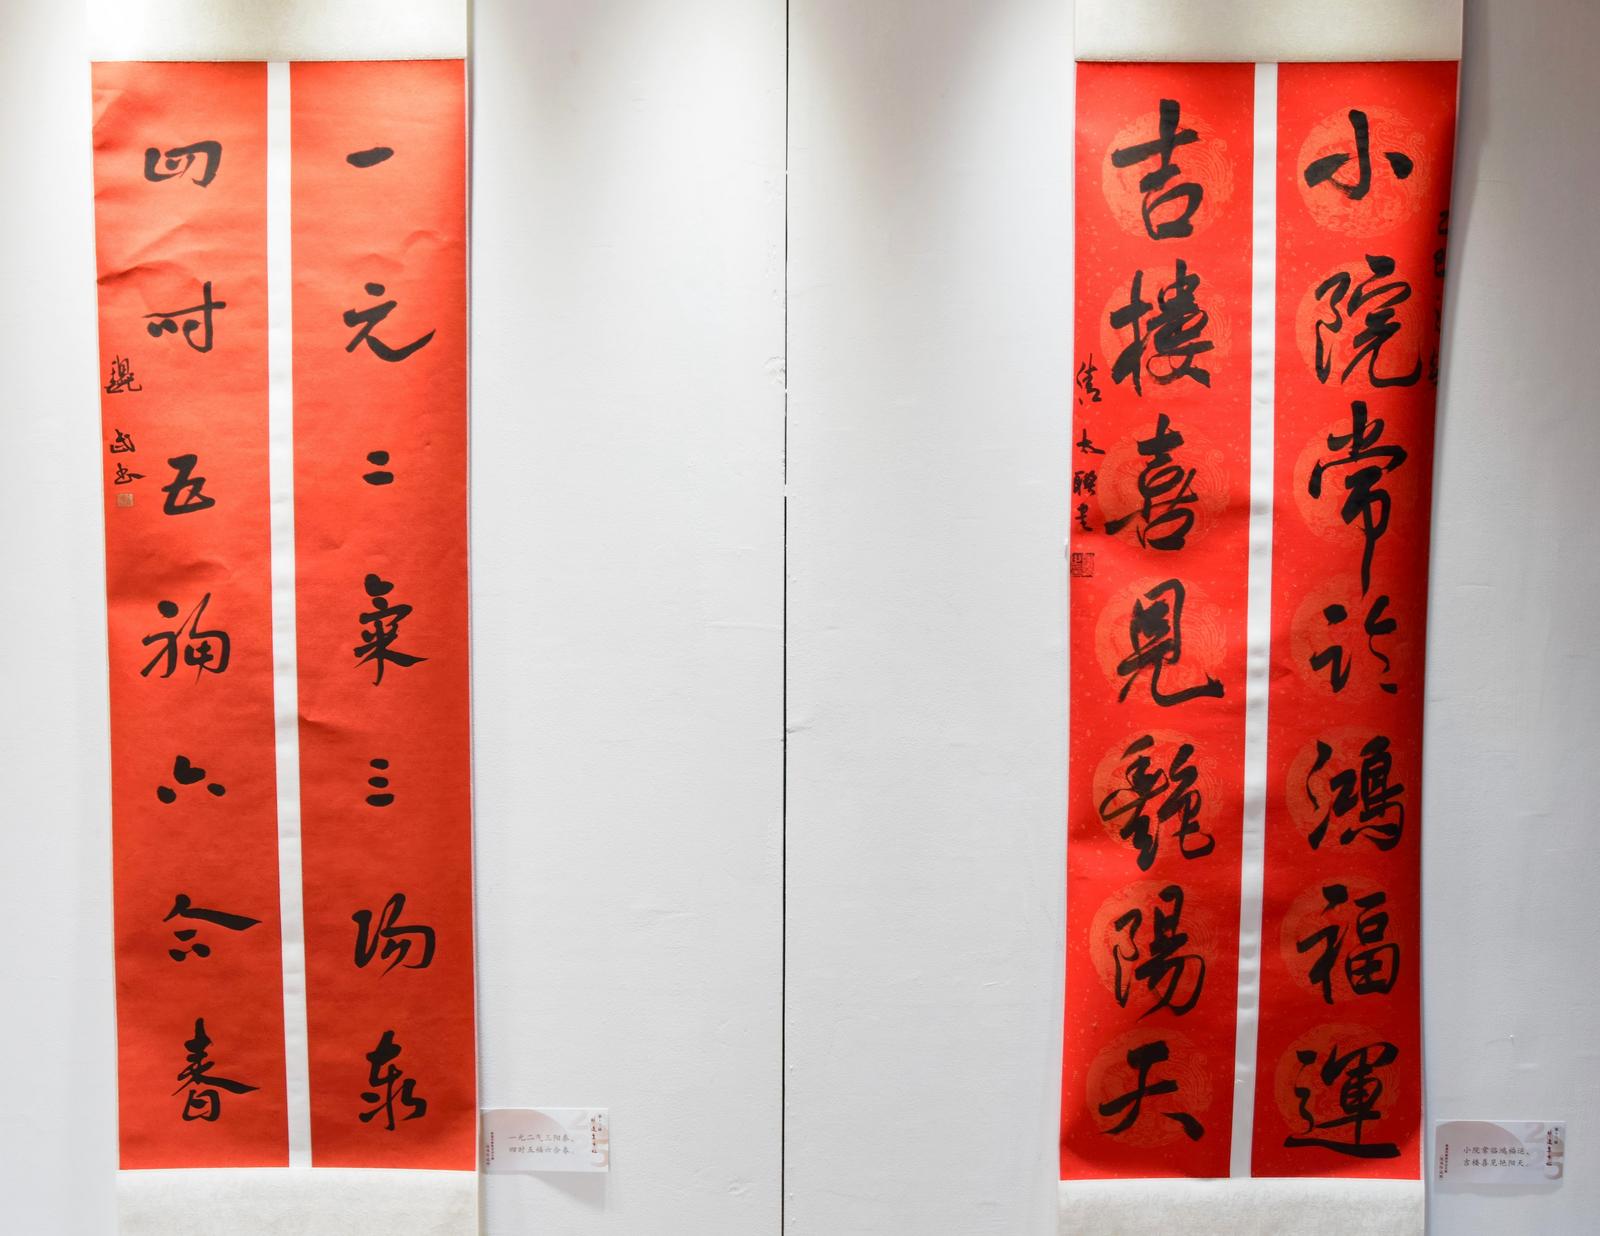 一元二氣三陽泰
四時五福六合春
小院常臨鴻福運
吉樓喜見艷陽天
一元二气三阳泰、
四时五福六合春。
小院常临鸿福运、
吉楼喜见艳阳天。